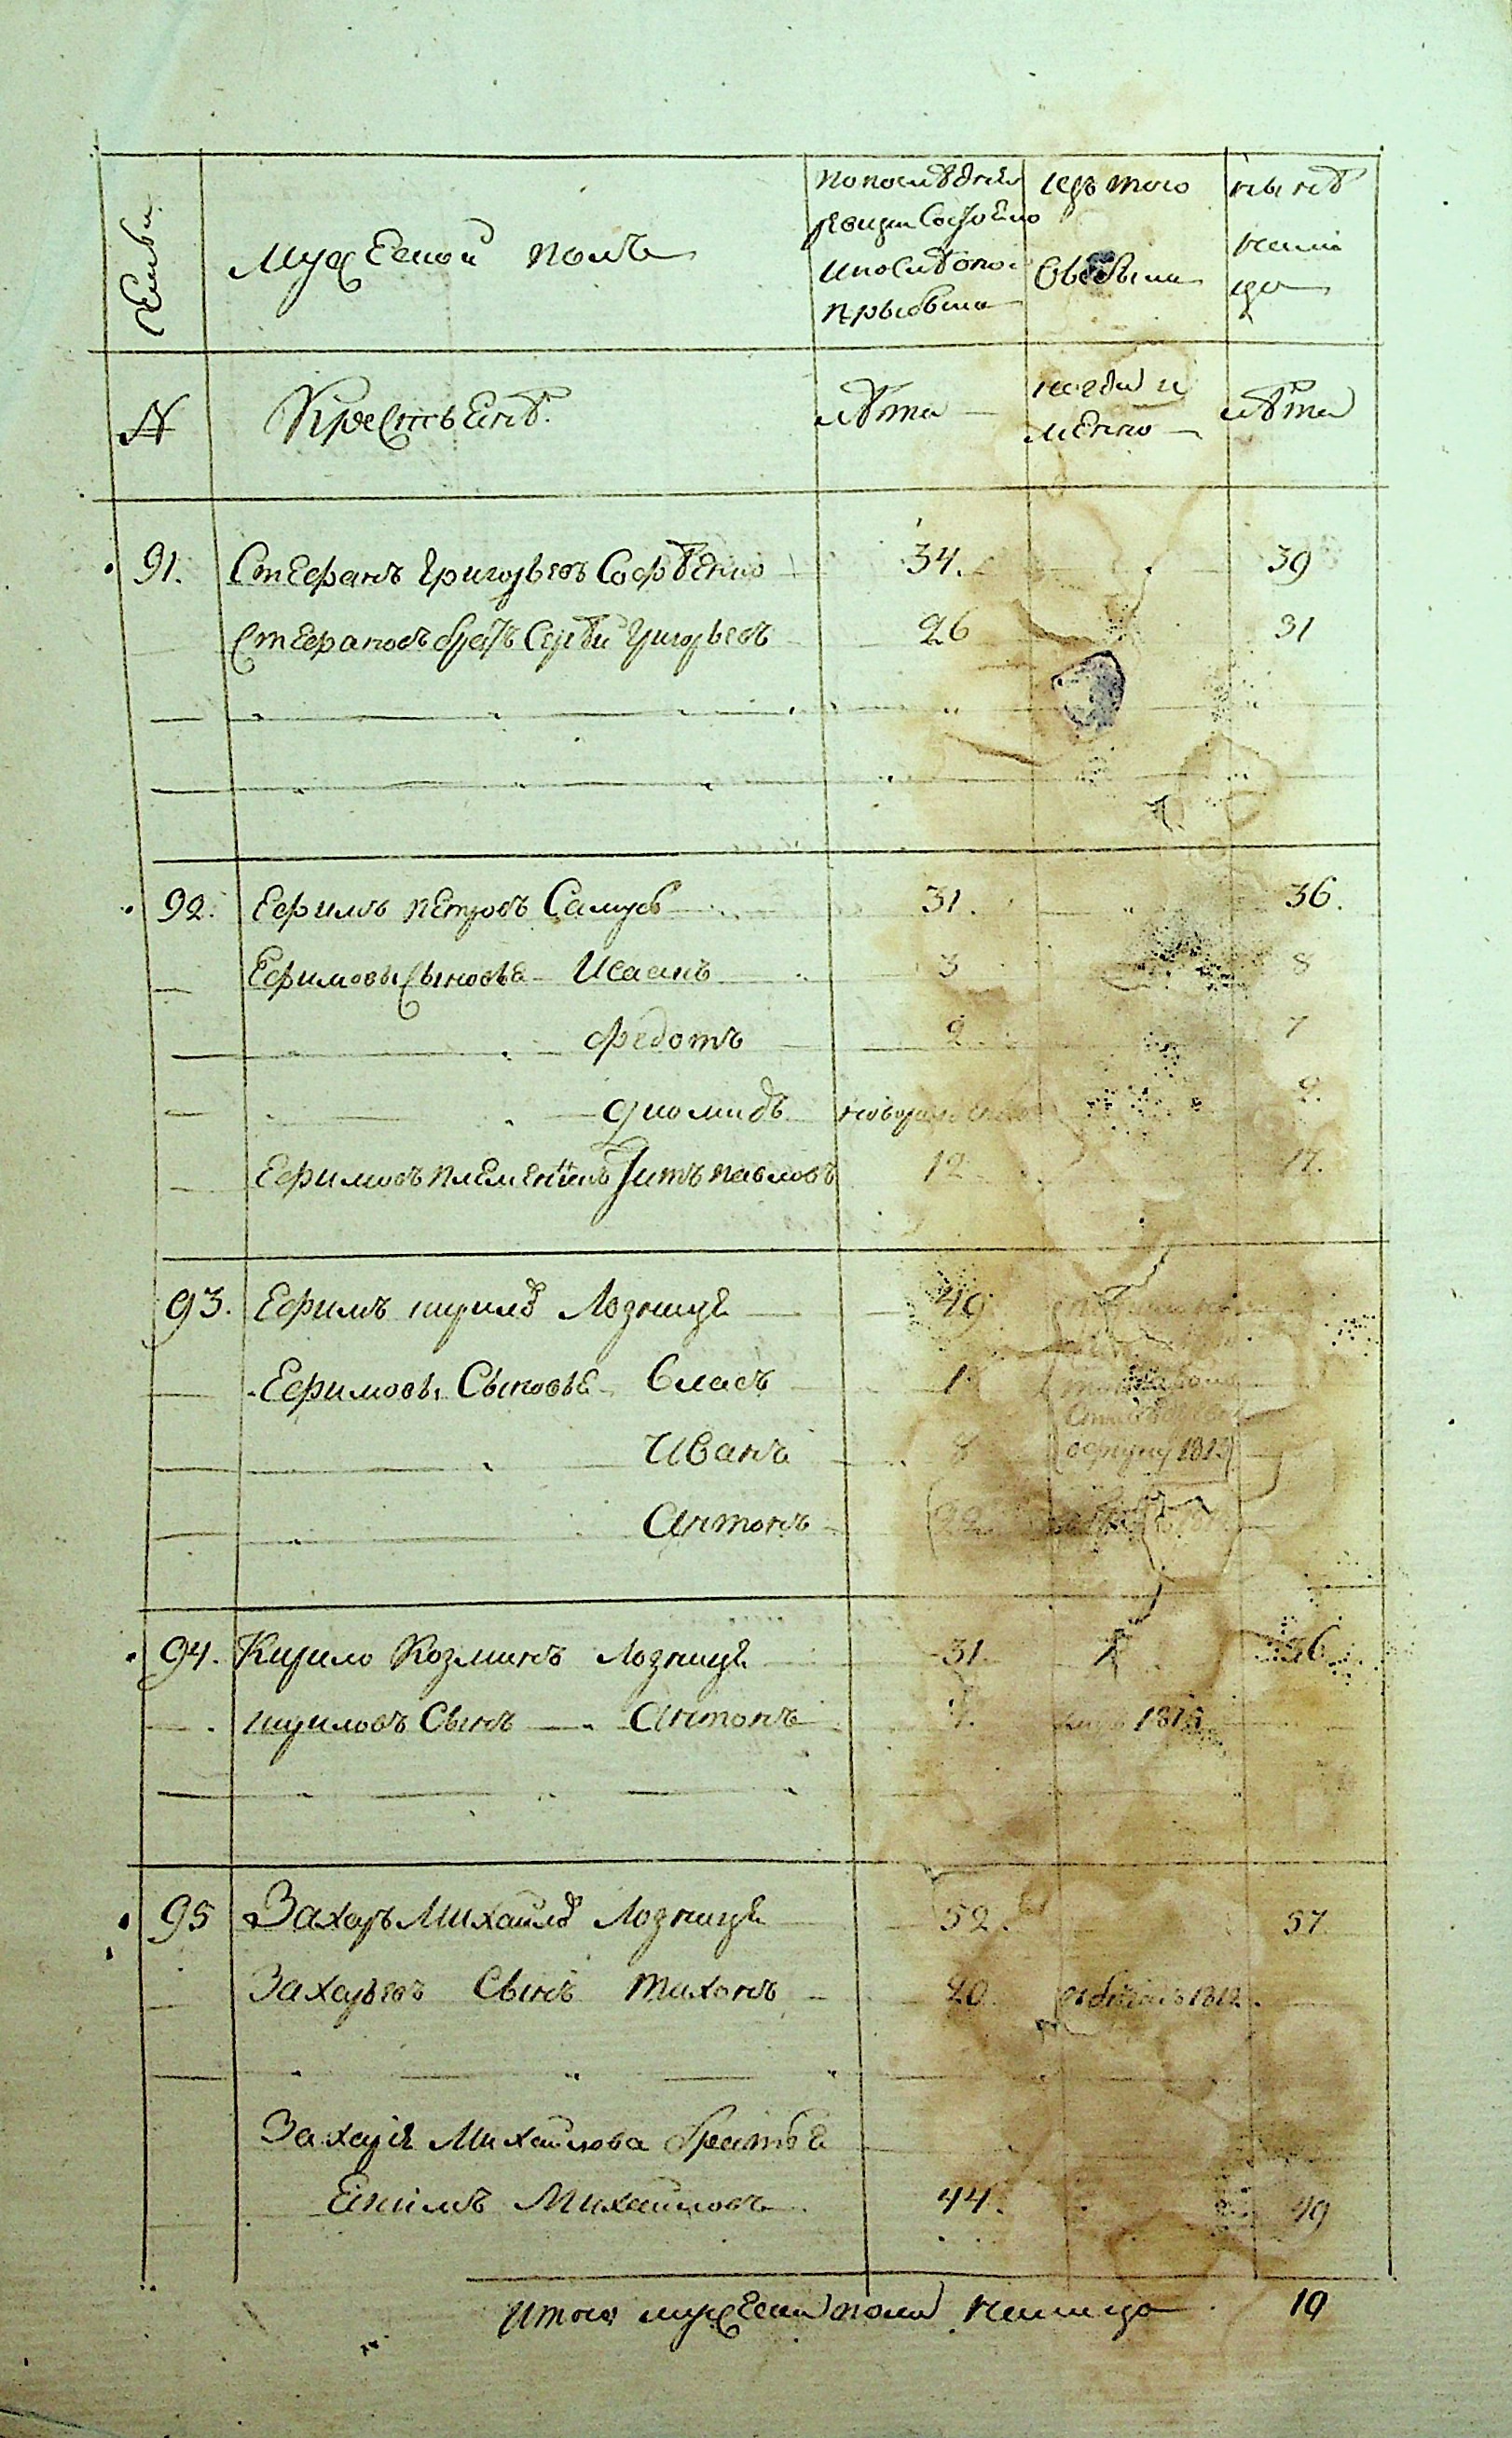 Семьи
Мужеской полъ
По последней
ревизіи состояло
и после оной
прибыло
изъ того
выбыло
ныне
на лицо
№
Крестьяне.
лета
когда и
менно
лета
91. Стефанъ Григорьевъ 34. 39
Стефановъ братъ Сергей Григорьевъ 26 31
92. Ефимъ Петровъ Самусь 31. 36.
Ефимовы сыновья Исаакъ 3 8
Федотъ 2 7
Диомидъ новорожденъ 2.
Ефимовъ племянникъ Титъ Павловъ 12 17.
93. Ефимъ Кирилов Лозница 49
Ефимовы Сыновья Власъ 1
Иванъ 8 1813
Антонъ 22
94. Кирило Козминъ Лозница 31. 36
Кириловъ Сынъ Антонъ
95 Захаръ Михайлов Лозница 52. 57
Захарьевъ Сынъ Тихонъ 20 1812.
Захарія Михайлова братья
Екимъ Михайловъ 44. 49
Итого мужеска пола налицо 10